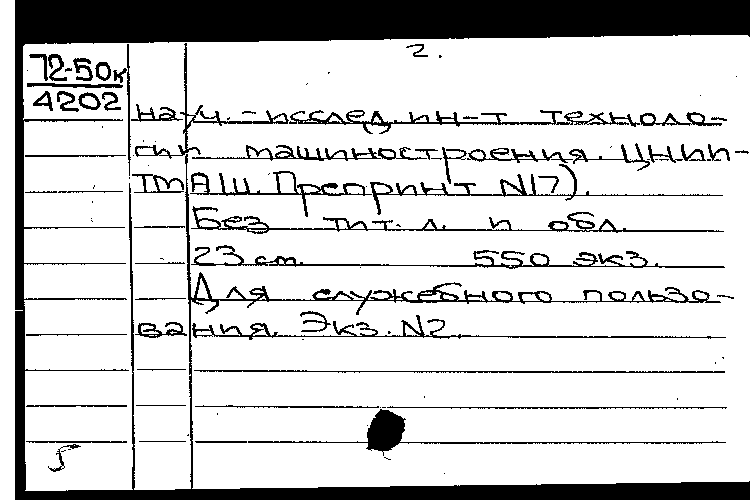 2.
72-50к
4202
науч.-исслед. ин-т техноло-
гии машиностроения. ЦНИИ-
ТМАШ. Препринт N17).
Без тит. л. и обл.
23 cm. 550 экз.
Для служебного пользо-
вания. Экз. N2.
5